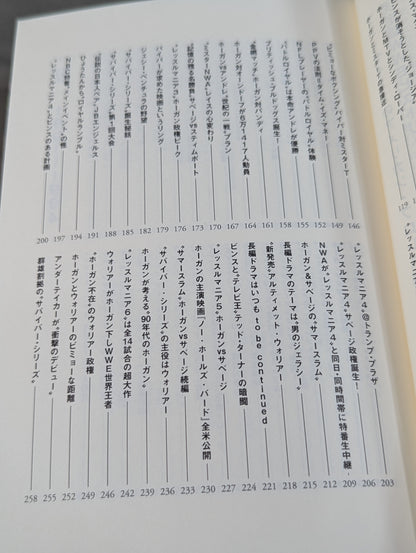 ホーガンとMTVとシンディ・ローパー
ビミョーなボクシング、パイパー対ミスターT 146
PPVの法則=タイム・イズ・マネー 149
NFLプレーヤーの〝バトルロイヤル〟体験 152
〝バトルロイヤル〟は本命アンドレが優勝 155
ブリティッシュ・ブルドッグス誕生! 158
〝金網マッチ〟ホーガン対バンディ 161
ホーガン対オーンドーフが6万1417人動員 164
ホーガンvsアンドレ〝世紀の一戦〟プラン 167
〝ミスターNWA〟レイスの心変わり 170
〝記憶の残る名勝負〟サベージvsスティムボート 173
〝レッスルマニア3〟ホーガン政権ピーク 176
パイパーが求めた映画というリング 179
ジェシー・ベンチュラの野望 182
〝サバイバー・シリーズ〟誕生秘話 185
〝サバイバー・シリーズ〟第1回大会 188
〝伝説の日本人ペア〟JBエンジェルス 191
ひょうたんから〝ロイヤルランブル〟 194
NBC特番〝メインイベント〟の怪 197
〝レッスルマニア4〟とビンスのある計画 200
〝レッスルマニア4〟@トランプ・プラザ 203
〝レッスルマニア4〟サベージ政権誕生! 206
NWAが〝レッスルマニア4〟と同日・同時間帯に特番生中継 209
ホーガン&サベージの〝サマースラム〟 212
長編ドラマのテーマは〝男のジェラシー〟 215
〝新発売〟アルティメット・ウォリアー 218
長編ドラマはいつも to be continued 221
ビンスと〝テレビ王〟テッド・ターナーの暗闘 224
〝レッスルマニア5〟ホーガンvsサベージ 227
ホーガンの主演映画『ノー・ホールズ・バード』全米公開 230
〝サマースラム〟ホーガンvsサベージ続編 233
〝サバイバー・シリーズ〟の主役はウォリアー 236
ホーガンが考える〝90年代のホーガン〟 239
〝レッスルマニア6〟は全14試合の超大作 242
ウォリアーがホーガン下しWWE世界王者 246
〝ホーガン不在〟のウォリアー政権 249
ホーガンとウォリアーのビミョーな距離 252
アンダーテイカーが〝衝撃のデビュー〟 255
群雄割拠の〝サバイバー・シリーズ〟 258